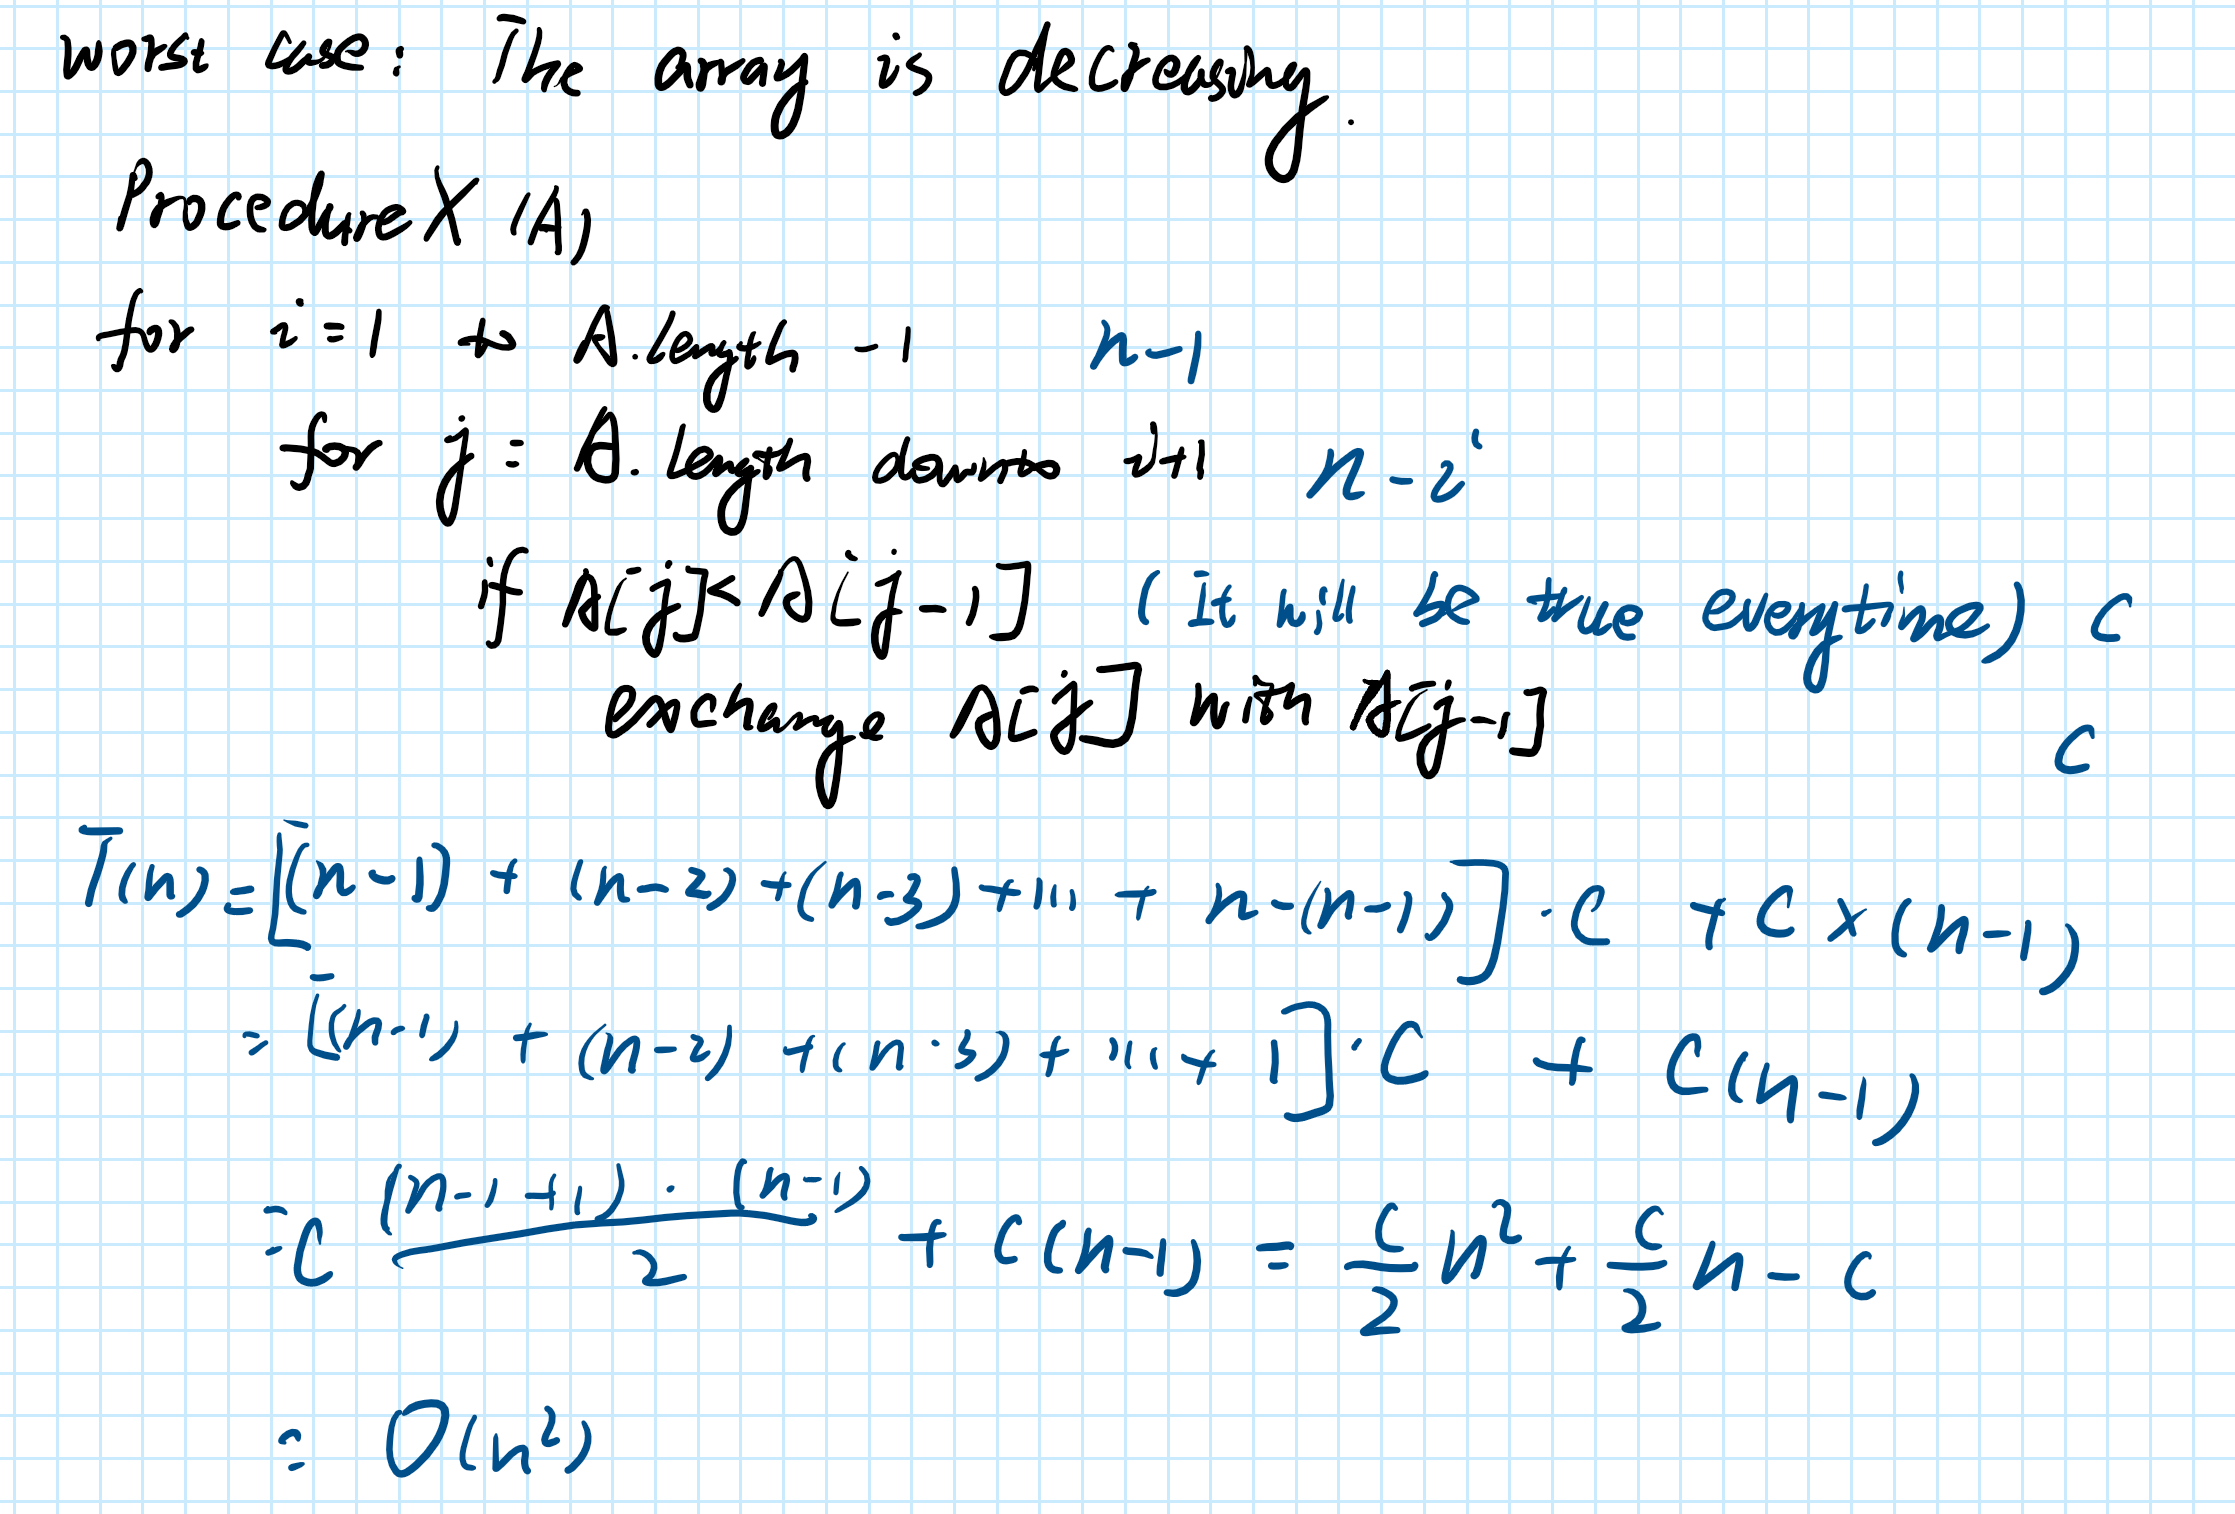 worst case: The array is decreasing.
Procedure X (A)
for i=1 to A.length -1 n-1
for j = A.length downto i+1 n-i
if A[j]<A[j-1] (It will be true everytime) C
exchange A[j] with A[j-1]
C
T(n)=[(n-1) + (n-2)+(n-3)+...+ n-(n-1)]·C + C×(n-1)
= [(n-1) + (n-2) +(n-3)+...+1]·C + C(n-1)
=C (n-1+1)·(n-1)/2 + C(n-1) = C/2 n² + C/2 n - C
= O(n²)